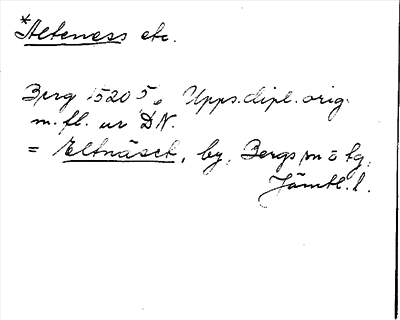 *Alteness etc.
Berg 1520 5/6 Upps.dipl. orig.
m. fl. ur DN.
= Eltnäset, by, Bergs sn o tg,
Jämtl. l.